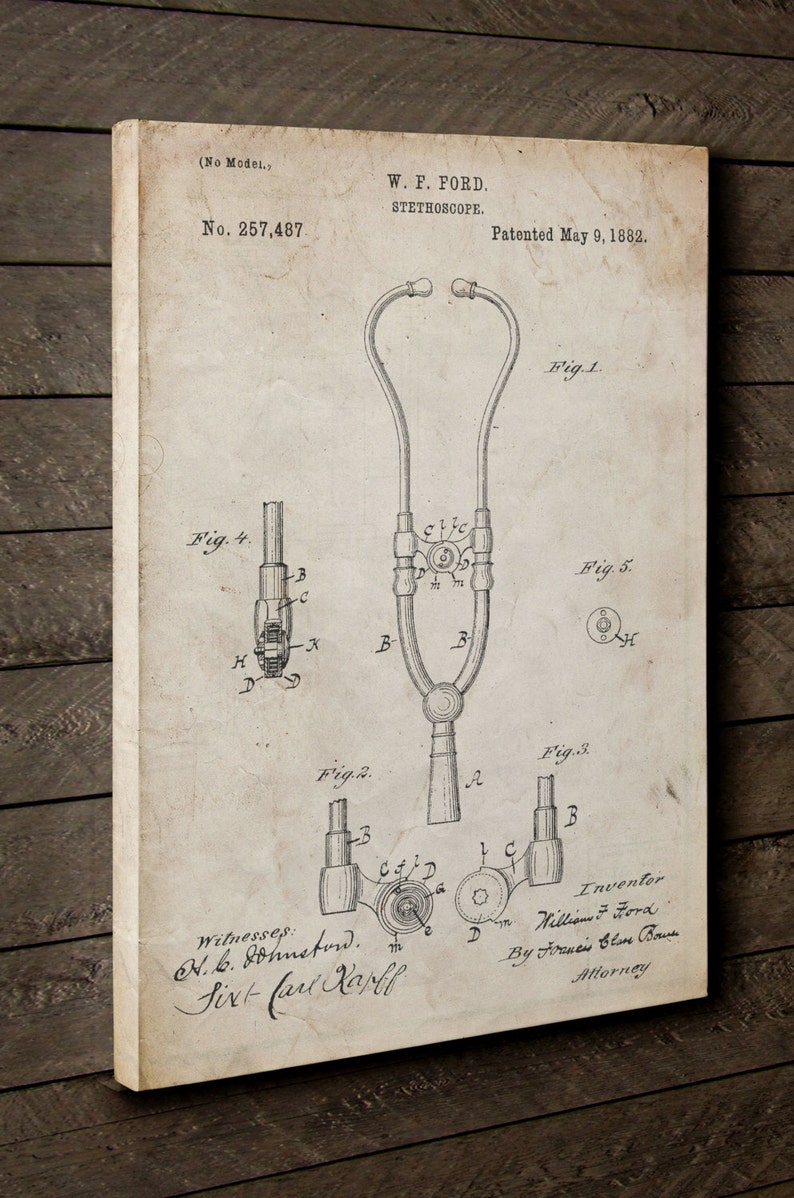 (No Model.)
W. F. FORD.
STETHOSCOPE.
No. 257,487
Patented May 9, 1882.
Fig. 1.
C l l C
D D
m m
Fig. 4.
B
C
H K
D D
Fig. 5.
H
B B
A
Fig. 2.
B
C f l D
G
e
m
Fig. 3.
B
l C
D m
Witnesses:
H. C. Johnston.
Sixt Carl Kapff
Inventor
William F Ford
By Francis Clare Bowen
Attorney